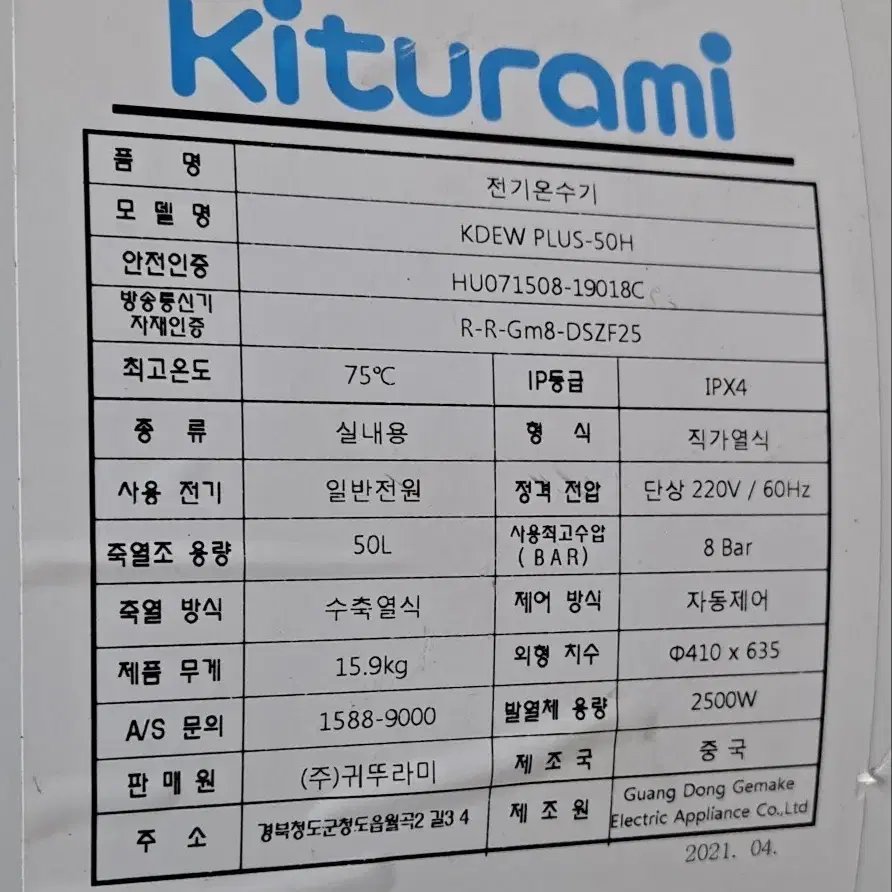 Kiturami
품 명 전기온수기
모델명 KDEW PLUS-50H
안전인증 HU071508-19018C
방송통신기
자재인증 R-R-Gm8-DSZF25
최고온도 75℃ IP등급 IPX4
종 류 실내용 형 식 직가열식
사용 전기 일반전원 정격 전압 단상 220V / 60Hz
축열조 용량 50L 사용최고수압
(BAR) 8 Bar
축열 방식 수축열식 제어 방식 자동제어
제품 무게 15.9kg 외형 치수 Φ410 x 635
A/S 문의 1588-9000 발열체 용량 2500W
판매원 (주)귀뚜라미 제조국 중국
주 소 경북청도군청도읍월곡2 길3 4 제조원 Guang Dong Gemake
Electric Appliance Co.,Ltd
2021. 04.